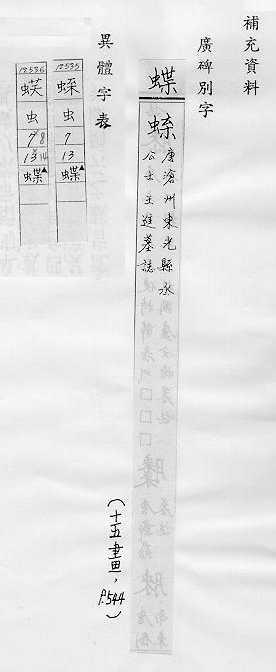 補充資料
廣碑別字
蝶
唐滄州東光縣丞
公士王進墓誌
(十五畫, P.544)
異體字表
12535
虫
7
13
蝶▲
12536
虫
7 8
13 14
蝶▲